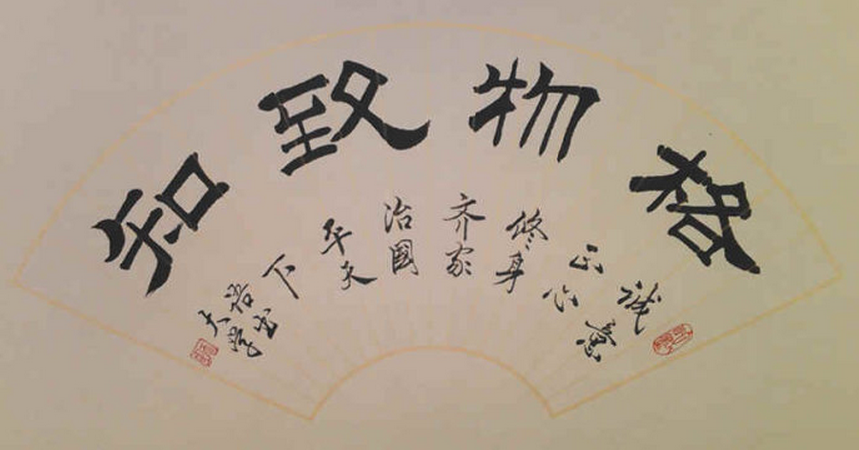 格物致知
诚意
正心
修身
齐家
治國
平天
下
书
大学